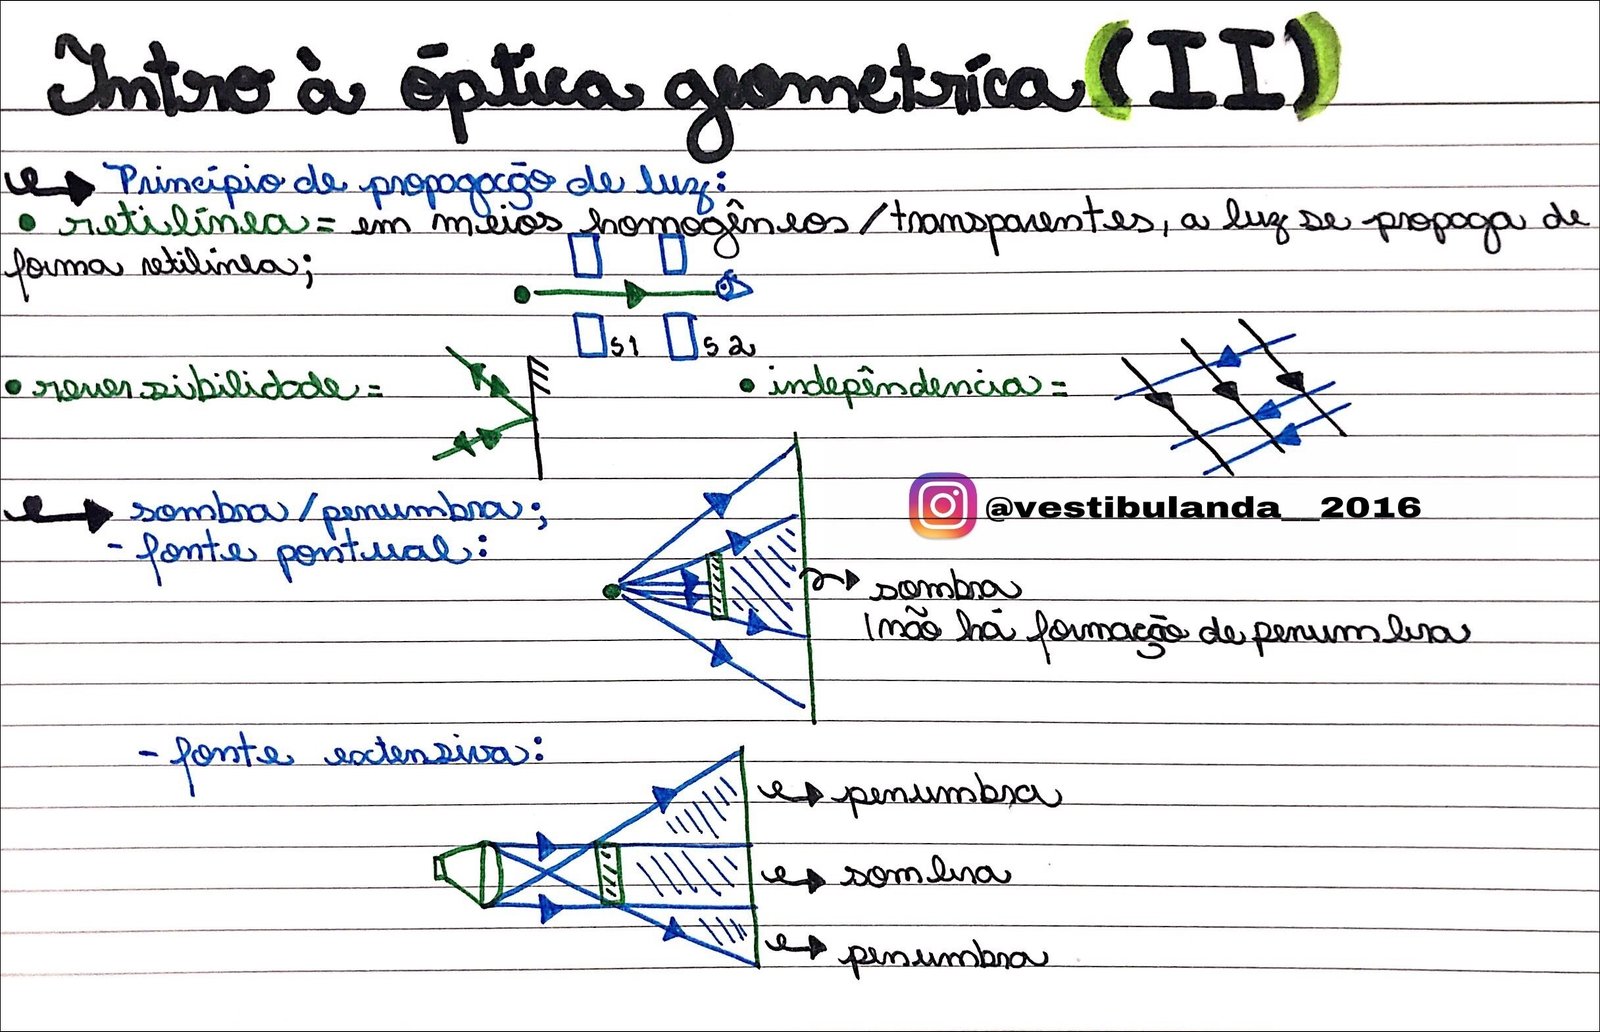 Intro à óptica geometríca (II)
Princípio de propagação de luz:
• retilínea = em meios homogêneos / transparentes, a luz se propaga de
forma retilínea;
S1 S2
• reversibilidade =
• indepêndencia =
sombra / penumbra;
@vestibulanda__2016
- fonte pontual:
sombra
(não há formação de penumbra
- fonte extensiva:
penumbra
sombra
penumbra